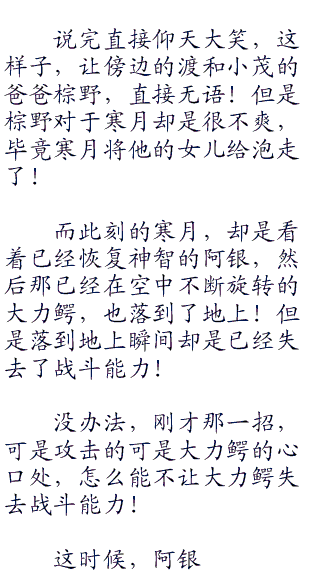 说完直接仰天大笑，这
样子，让傍边的渡和小茂的
爸爸棕野，直接无语！但是
棕野对于寒月却是很不爽，
毕竟寒月将他的女儿给泡走
了！
而此刻的寒月，却是看
着已经恢复神智的阿银，然
后那已经在空中不断旋转的
大力鳄，也落到了地上！但
是落到地上瞬间却是已经失
去了战斗能力！
没办法，刚才那一招，
可是攻击的可是大力鳄的心
口处，怎么能不让大力鳄失
去战斗能力！
这时候，阿银